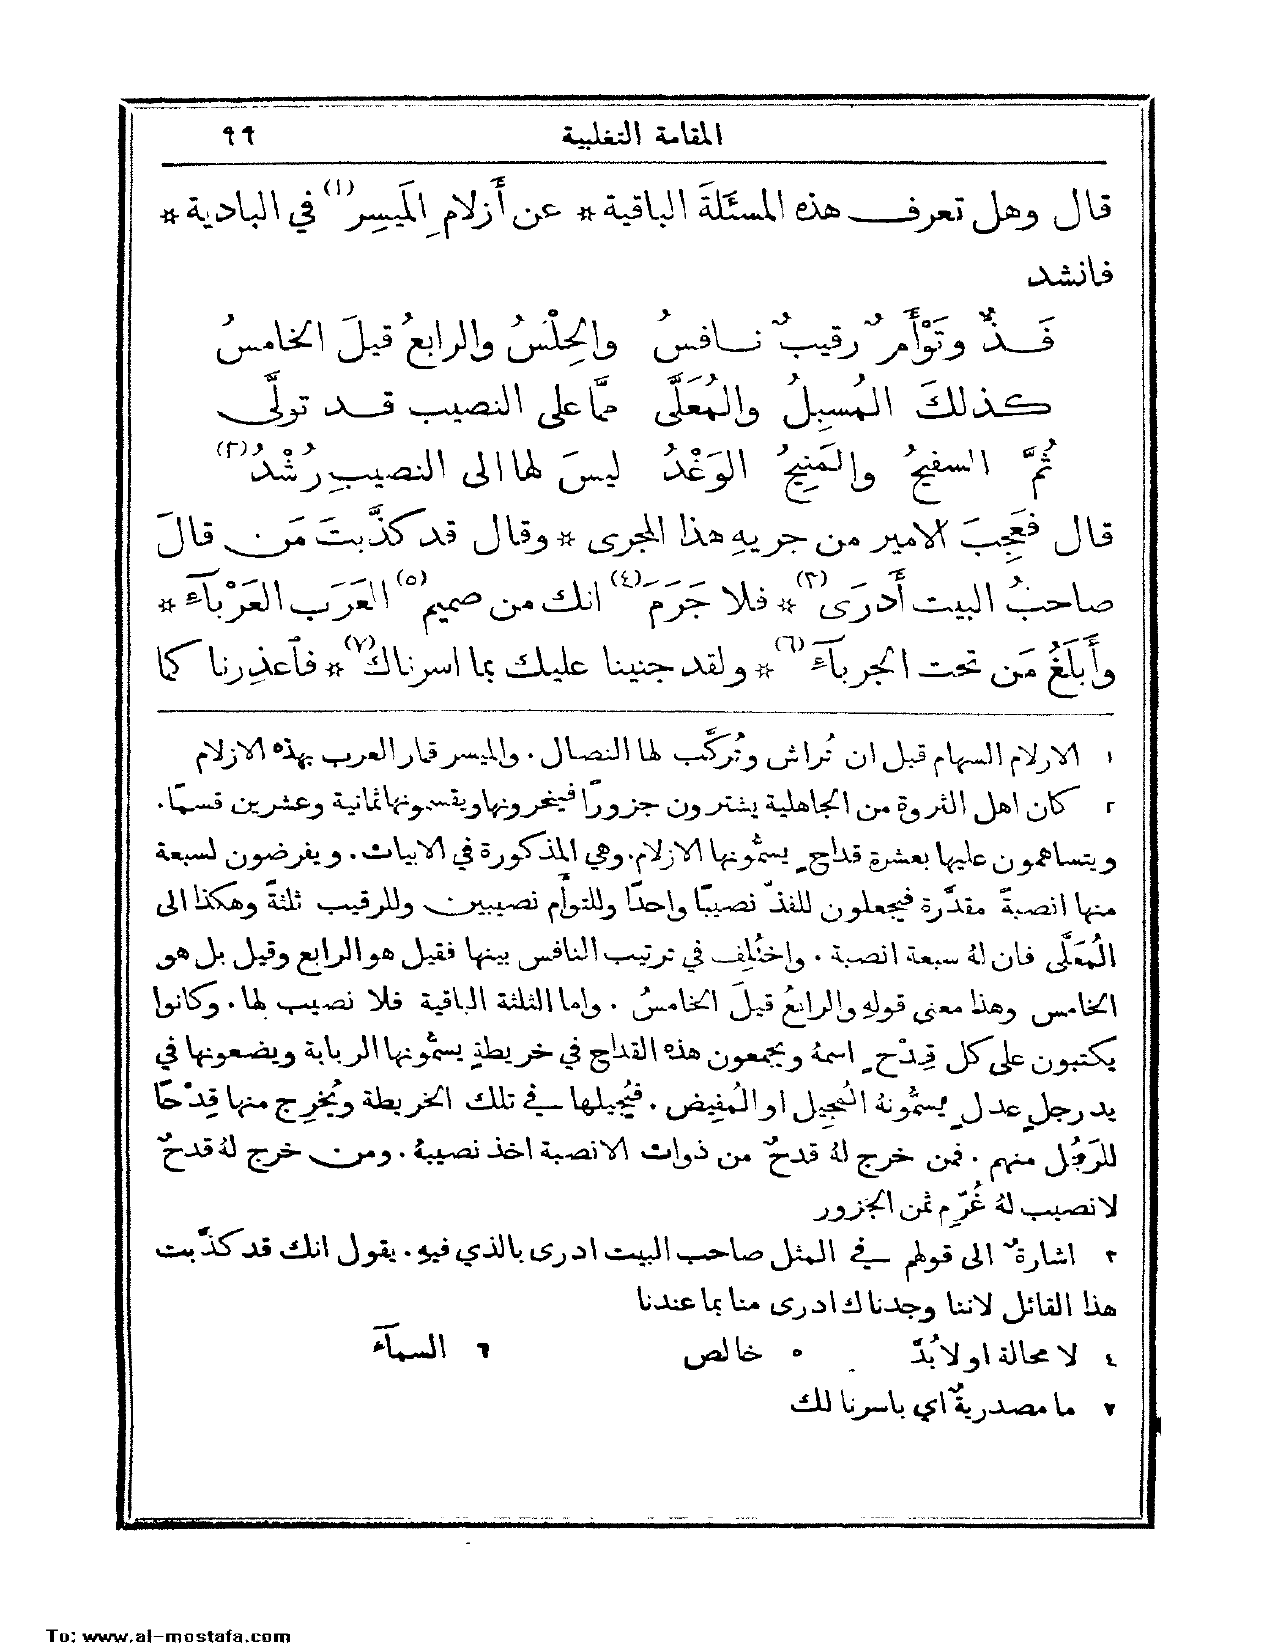 المقامة التغلبية ٩٩
قال وهل تعرف هذه المسئلَة الباقية * عن أَزلامِ المَيسِر(١) في البادية *
فانشد
فَـذٌّ وتَوْأَمٌ رقيبٌ نـافسُ والحِلْسُ والرابعُ قيلَ الخامسُ
كذلكَ المُسبِلُ والمُعَلَّى ممَّا على النصيب قد تولَّى
ثُمَّ السفيحُ والمَنِيحُ الوَغْدُ ليسَ لها الى النصيب رُشْدُ(٢)
قال فعَجِبَ الامير من جريه هذا المجرى * وقال قد كذَّبتَ مَن قالَ
صاحبُ البيت أَدرَى(٣) * فلا جَرَمَ(٤) انك من صميم(٥) العَرَب العَرْبآءِ *
وأَبلَغُ مَن تحت الجربآءِ(٦) * ولقد جنينا عليك بما اسرناك(٧) * فاعذِرنا كما
١ الازلام السهام قبل ان تُراش وتُركَّب لها النصال . والميسر قمار العرب بهذه الازلام
٢ كان اهل الثروة من الجاهلية يشترون جزورًا فينحرونها ويقسمونها ثمانية وعشرين قسمًا .
ويتساهمون عليها بعشرة قداحٍ يسمُّونها الازلام . وهي المذكورة في الابيات . ويفرضون لسبعة
منها انصبةً مقدَّرة فيجعلون للفذّ نصيبًا واحدًا وللتوأم نصيبين وللرقيب ثلثةً وهكذا الى
المُعَلَّى فان لهُ سبعة انصبة . واختُلِف في ترتيب النافس بينها فقيل هو الرابع وقيل بل هو
الخامس وهذا معنى قولهِ والرابعُ قيلَ الخامسُ . واما الثلثة الباقية فلا نصيب لها . وكانوا
يكتبون على كل قِدْحٍ اسمهُ ويجمعون هذه القداح في خريطةٍ يسمُّونها الربابة ويضعونها في
يد رجلٍ عدلٍ يُسمُّونهُ المُجيل او المُفيض . فيُجيلها في تلك الخريطة ويُخرِج منها قِدْحًا
للرَجُل منهم . فمن خرج لهُ قدحٌ من ذوات الانصبة اخذ نصيبهُ . ومن خرج لهُ قدحٌ
لا نصيب لهُ غُرِّم ثمن الجزور
٣ اشارةٌ الى قولهم في المثل صاحب البيت ادرى بالذي فيهِ . يقول انك قد كذَّبت
هذا القائل لاننا وجدناك ادرى منا بما عندنا
٤ لا محالة او لا بُدَّ ٥ خالص ٦ السمآء
٧ ما مصدريةٌ اي باسرنا لك
To: www.al-mostafa.com